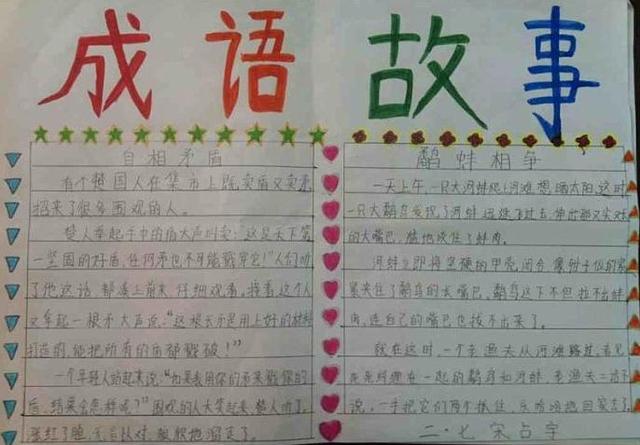 成语故事
自相矛盾
有个楚国人在集市上既卖盾又卖矛
招来了很多围观的人。
楚人举起手中的盾大声叫卖:“这是天下第
一坚固的好盾,任何矛也不可能戳穿它!”人们听
了他这话,都凑上前来,仔细观看,接着,这个人
又拿起一根矛大声说:“这根长矛是用上好的材料
打造的,能把所有的盾都戳破!”
一个年轻人站起来说:“如果我用你的矛来戳你的
盾,结果会怎样呢?”围观的人大笑起来,楚人听了,
涨红了脸,无言以对,
鹬蚌相争
一天上午,一只大河蚌爬上河滩,想晒太阳,这时
一只大鹬鸟发现了河蚌,迅速飞过去,伸出那又尖又长
的大嘴巴,猛地咬住了蚌肉。
河蚌立即将坚硬的甲壳闭合,像钳子似的紧
紧夹住了鹬鸟的长嘴巴,鹬鸟这下不但拉不出蚌
肉,连自己的嘴巴也拔不出来了。
就在这时,一个老渔夫从河滩路过,看见
在一起的鹬鸟和河蚌,老渔夫二话不
说,一手把它们两个抓住,
二·七 宋占宇